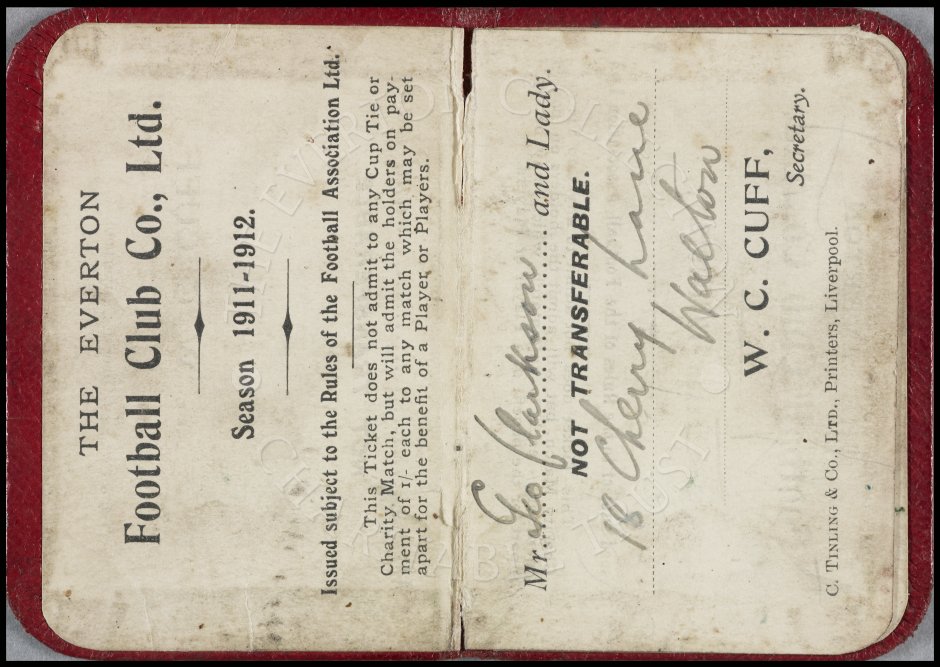 THE EVERTON
Football Club Co., Ltd.
Season 1911-1912.
Issued subject to the Rules of the Football Association Ltd.
This Ticket does not admit to any Cup Tie or
Charity Match, but will admit the holders on pay-
ment of 1/- each to any match which may be set
apart for the benefit of a Player or Players.
Mr. Geo Clarkson and Lady.
NOT TRANSFERABLE.
18 Cherry Lane
Walton
W. C. CUFF,
Secretary.
C. TINLING & CO., LTD., Printers, Liverpool.
THE EVERTON COLLECTION
CHARITABLE TRUST